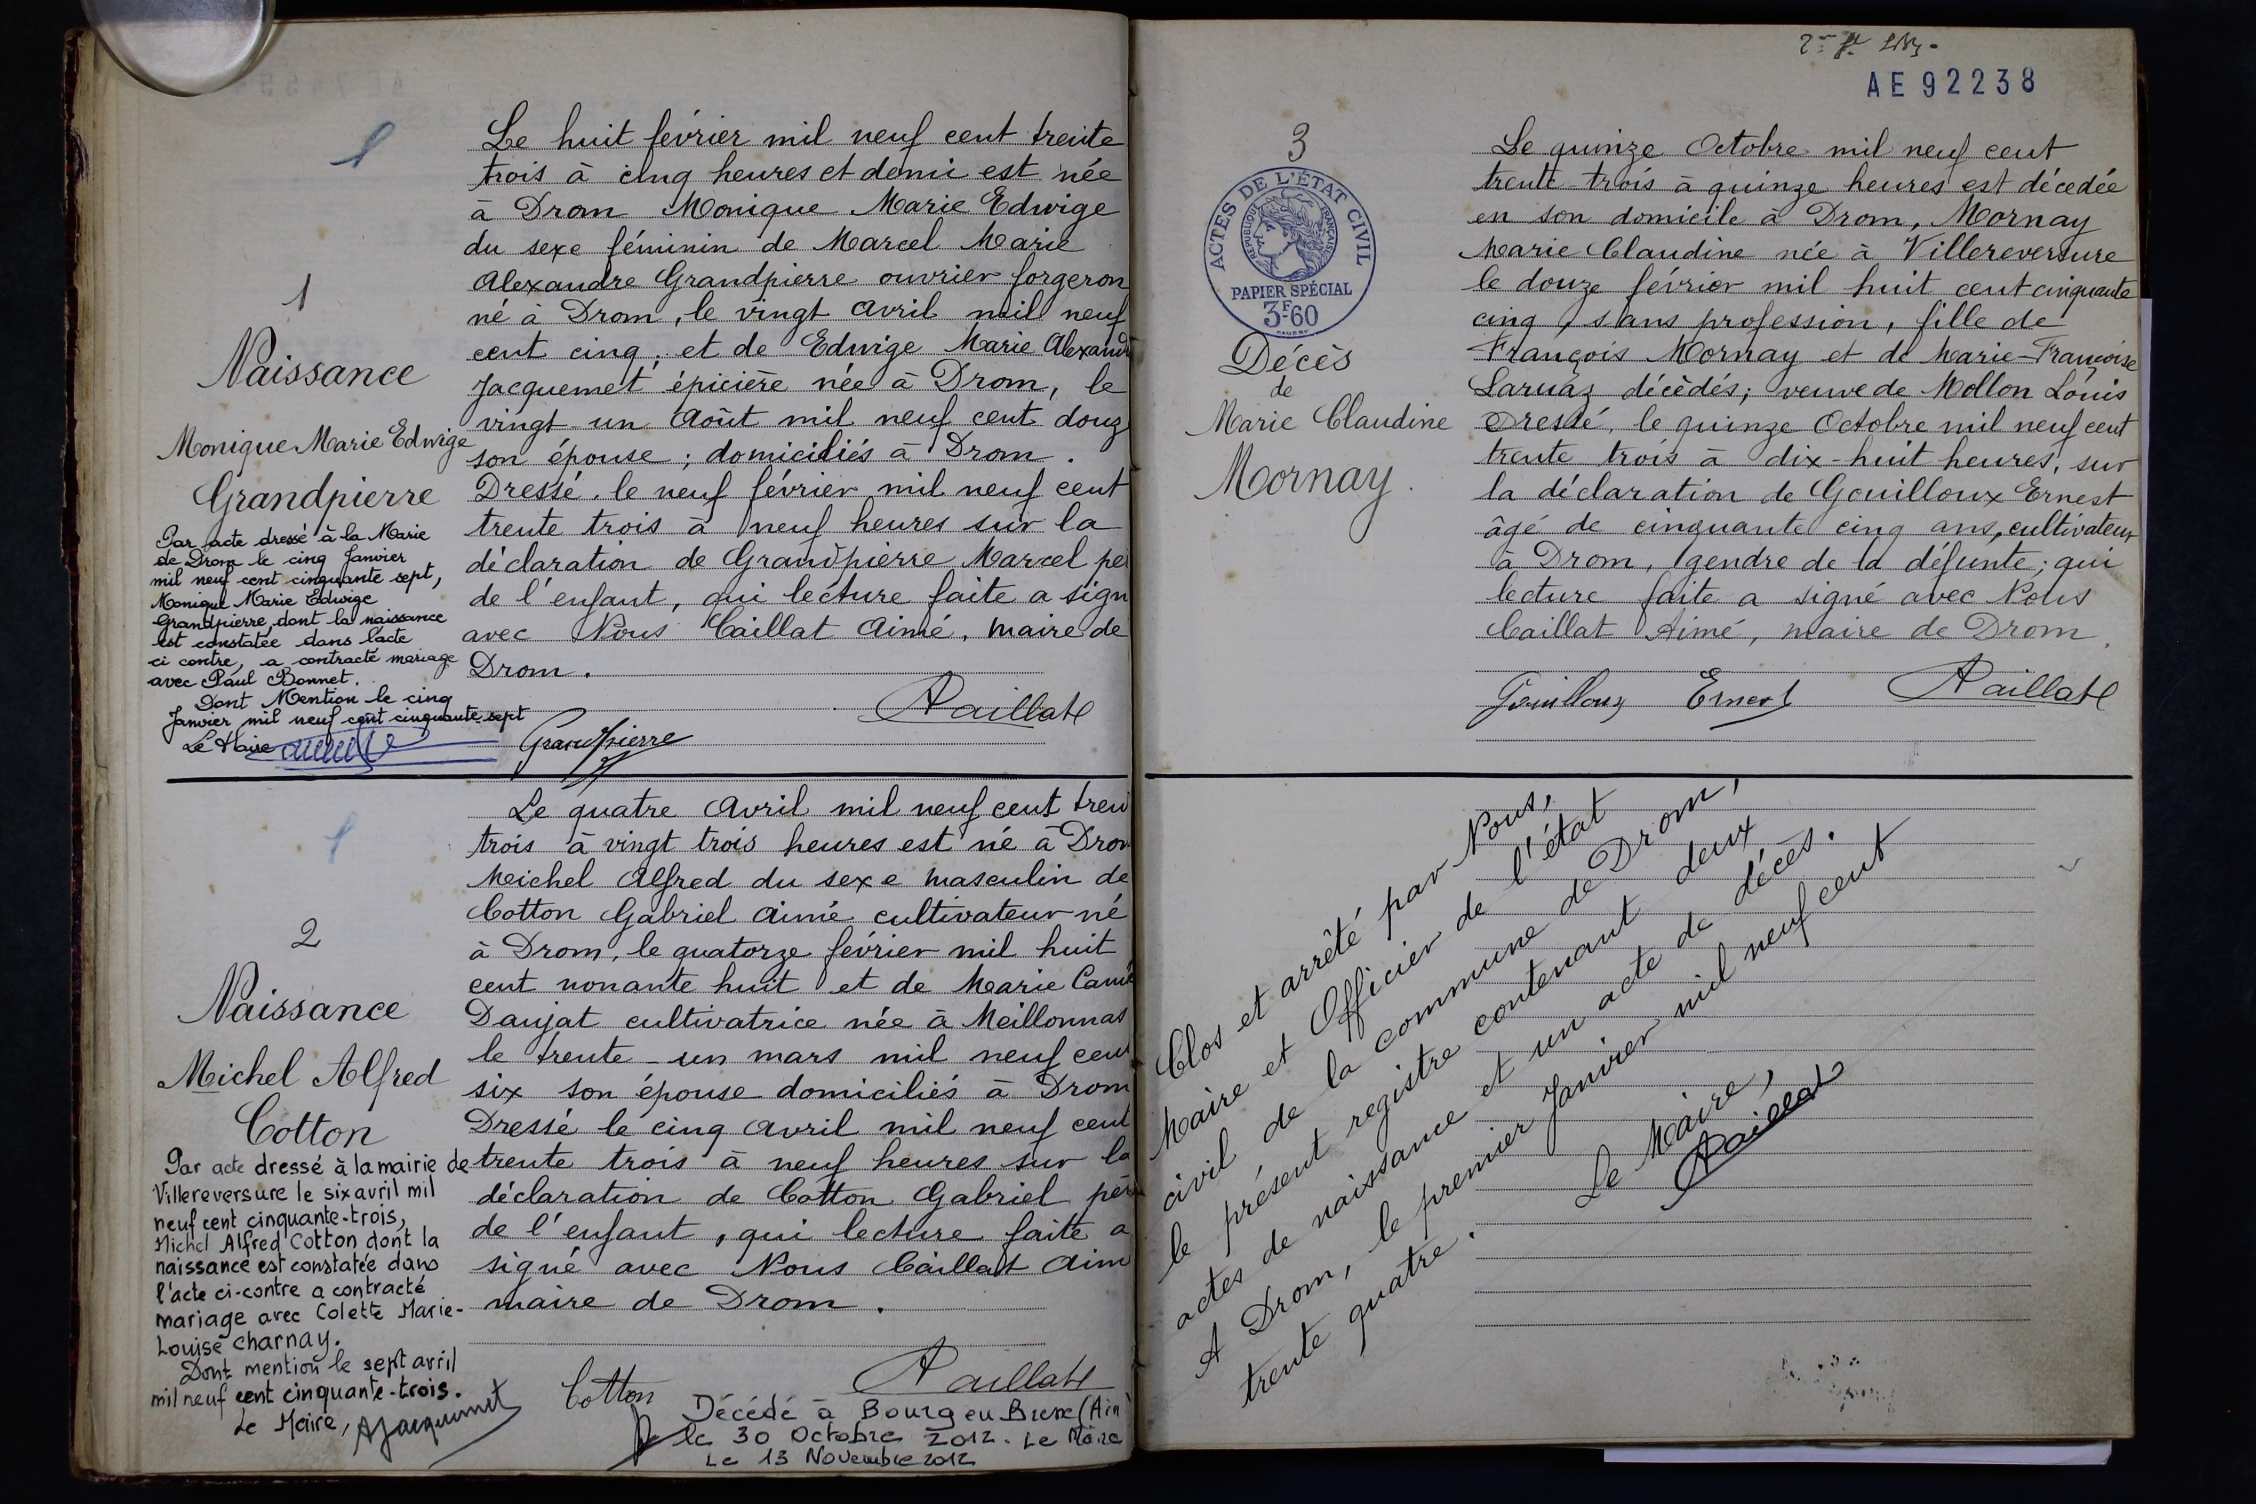 1
Naissance
Monique Marie Edwige
Grandpierre
Par acte dressé à la Marie
de Drom le cinq Janvier
mil neuf cent cinquante sept,
Monique Marie Edwige
Grandpierre, dont la naissance
est constatée dans l'acte
ci contre, a contracté mariage
avec Paul Bonnet.
Dont Mention le cinq
Janvier mil neuf cent cinquante sept
Le Maire
Le huit février mil neuf cent trente
trois à cinq heures et demie est née
à Drom Monique Marie Edwige
du sexe féminin de Marcel Marie
Alexandre Grandpierre ouvrier forgeron
né à Drom, le vingt Avril mil neuf
cent cinq; et de Edwige Marie Alexand
Jacquemet épicière née à Drom, le
vingt un Août mil neuf cent douz
son épouse; domiciliés à Drom.
Dressé, le neuf février mil neuf cent
trente trois à neuf heures sur la
déclaration de Grandpierre Marcel pe
de l'enfant, qui lecture faite a sign
avec Nous Caillat Aimé, maire de
Drom.
ACaillat
Grandpierre
2
Naissance
Michel Alfred
Cotton
Par acte dressé à la mairie de
Villereversure le six avril mil
neuf cent cinquante-trois,
Michel Alfred Cotton dont la
naissance est constatée dans
l'acte ci-contre a contracté
mariage avec Colette Marie-
Louise Charnay.
Dont mention le sept avril
mil neuf cent cinquante-trois.
Le Maire, AJacquemet
Le quatre Avril mil neuf cent tren
trois à vingt trois heures est né à Drom
Michel Alfred du sexe masculin de
Cotton Gabriel Aimé cultivateur né
à Drom, le quatorze février mil huit
cent nonante huit et de Marie Cami
Daujat cultivatrice née à Meillonnas
le trente-un mars mil neuf cent
six son épouse domiciliés à Drom
Dressé le cinq Avril mil neuf cent
trente trois à neuf heures sur la
déclaration de Cotton Gabriel pèr
de l'enfant, qui lecture faite a
signé avec Nous Caillat Aim
maire de Drom.
ACaillat
Cotton
Décédé à Bourg en Bresse (Ain)
le 30 Octobre 2012. Le Maire
Le 13 Novembre 2012
AE 92238
3
ACTES DE L'ÉTAT CIVIL
RÉPUBLIQUE FRANÇAISE
PAPIER SPÉCIAL
3F60
Décès
de
Marie Claudine
Mornay.
Le quinze Octobre mil neuf cent
trente-trois à quinze heures est décedée
en son domicile à Drom, Mornay
Marie Claudine née à Villereversure
le douze février mil huit cent cinquante
cinq, sans profession, fille de
François Mornay et de Marie-Françoise
Laruaz décèdés; veuve de Mollon Louis
Dressé, le quinze Octobre mil neuf cent
trente trois à dix-huit heures, sur
la déclaration de Gouilloux Ernest
âgé de cinquante cinq ans, cultivateur
à Drom, gendre de la défunte; qui
lecture faite a signé avec Nous
Caillat Aimé, maire de Drom.
Gouilloux Ernest ACaillat
Clos et arrêté par Nous,
Maire et Officier de l'état
civil de la commune de Drom,
le présent registre contenant deux
actes de naissance et un acte de décès.
A Drom, le premier Janvier mil neuf cent
trente quatre.
Le Maire,
ACaillat